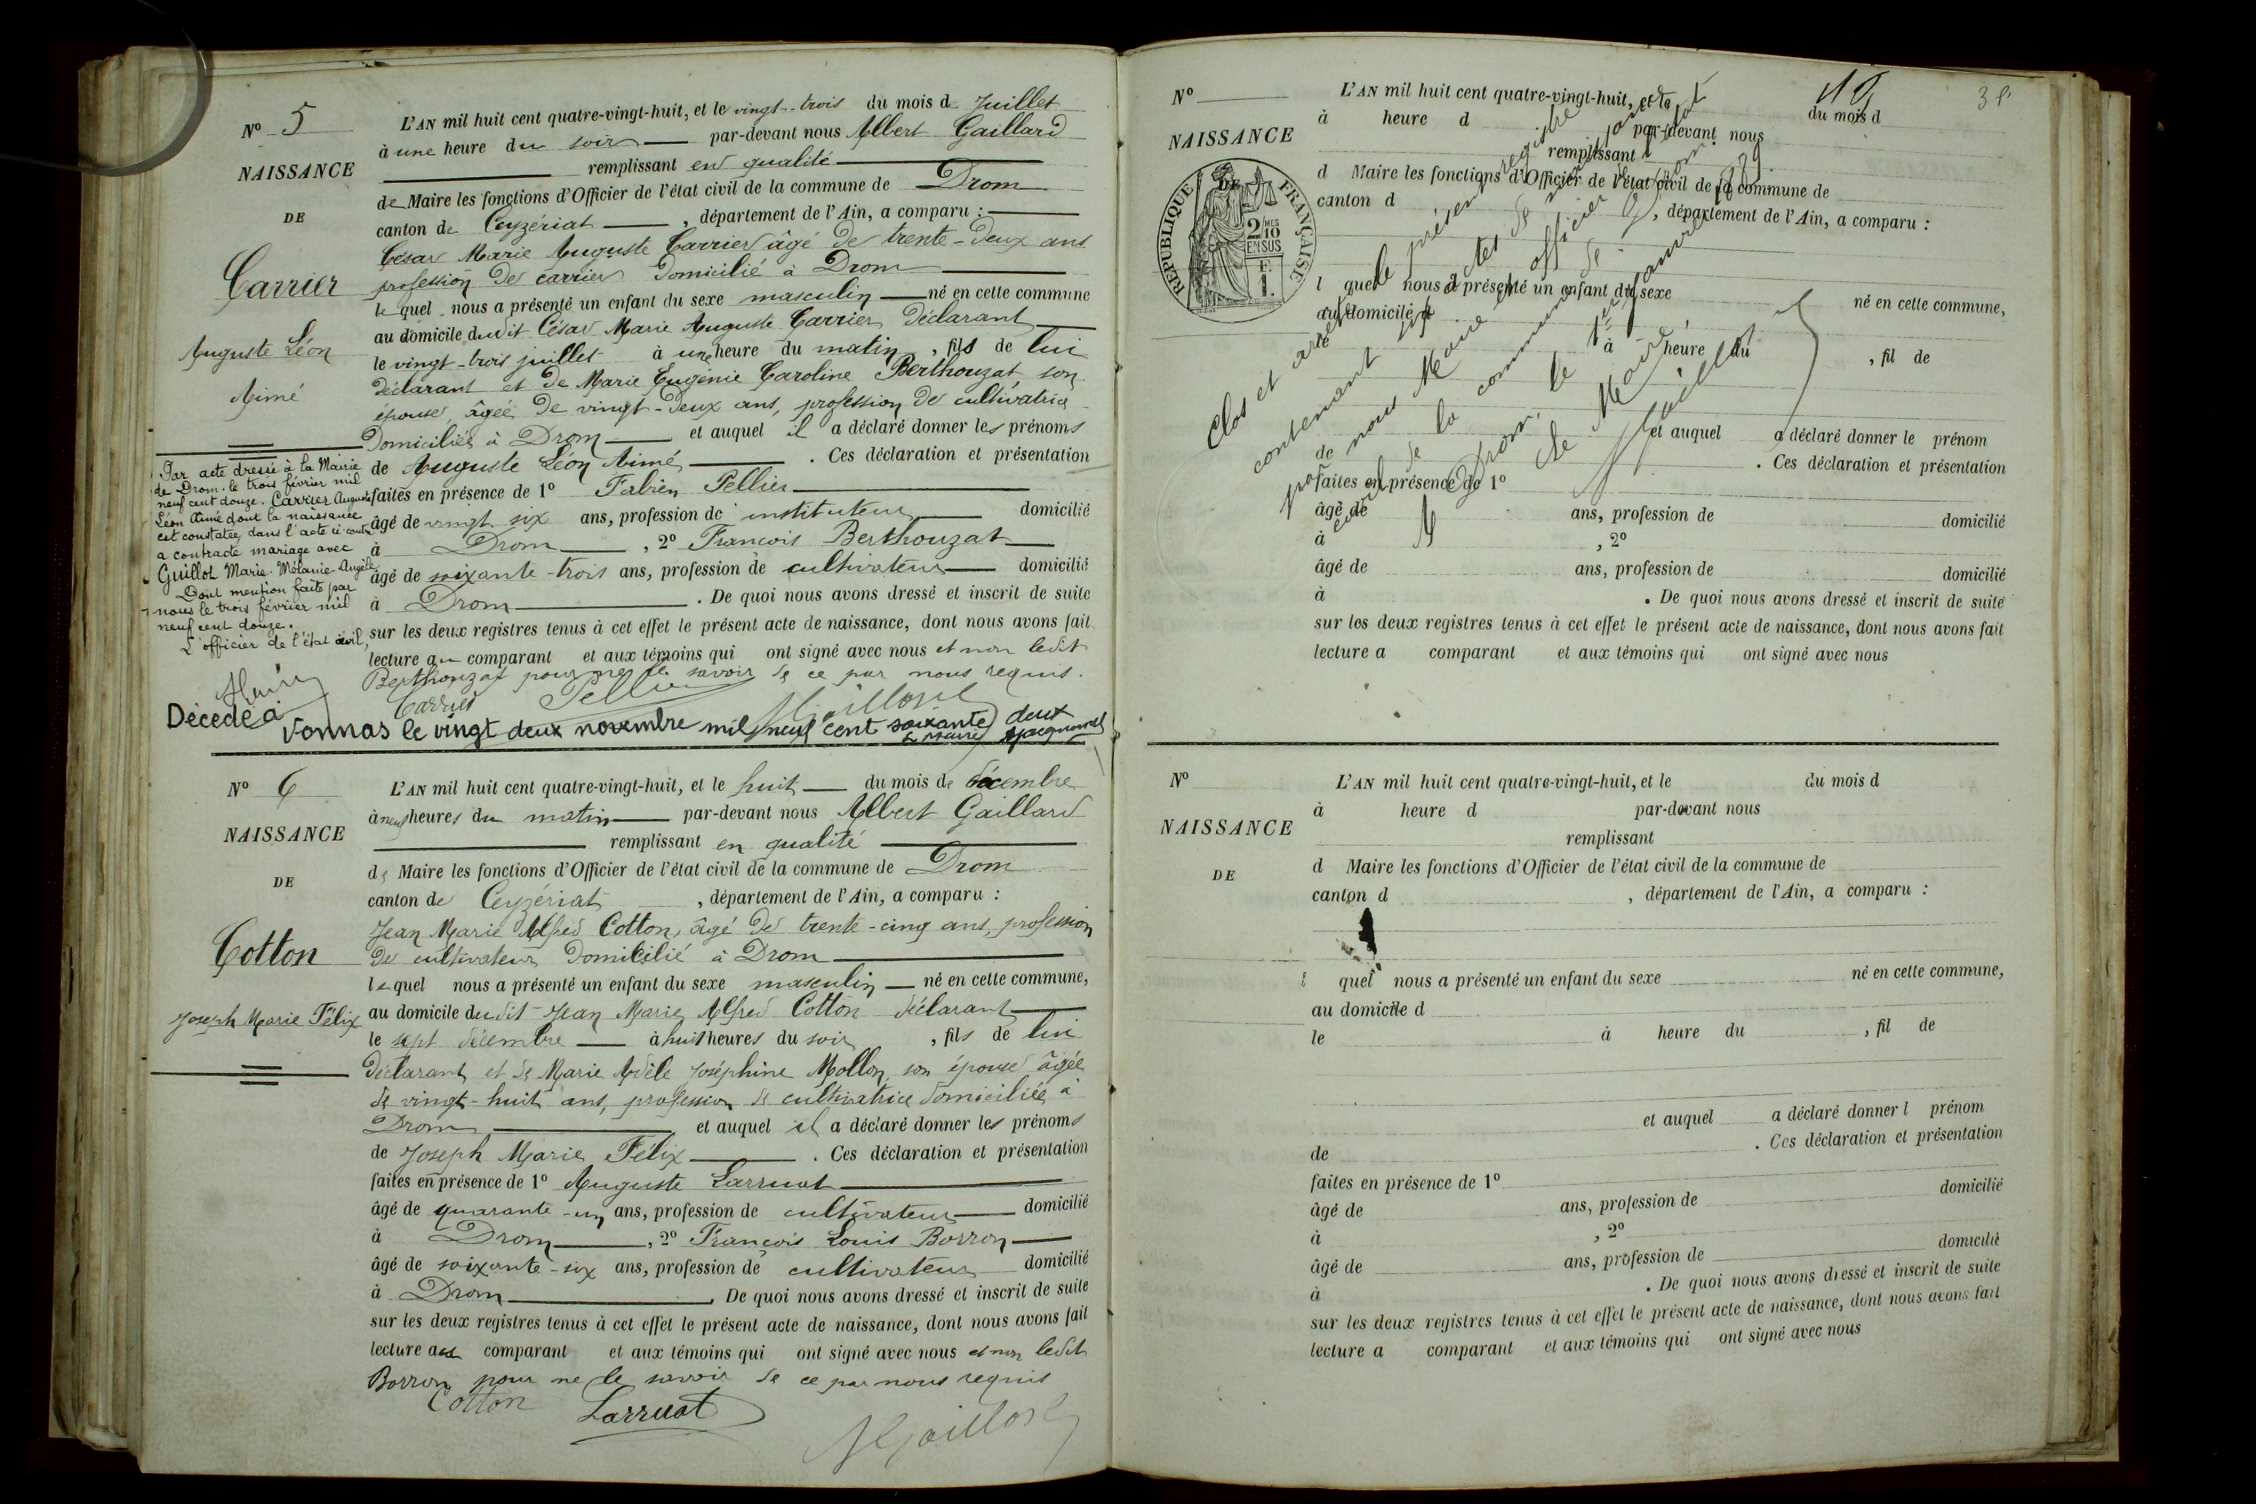 N° 5
NAISSANCE
DE
Carrier
Auguste Léon
Aimé
L'AN mil huit cent quatre-vingt-huit, et le vingt-trois du mois de Juillet
à une heure du soir par-devant nous Albert Gaillard
remplissant en qualité
de Maire les fonctions d'Officier de l'état civil de la commune de Drom
canton de Ceyzériat, département de l'Ain, a comparu :
César Marie Auguste Carrier âgé de trente-deux ans
profession de carrier domicilié à Drom
lequel nous a présenté un enfant du sexe masculin né en cette commune
au domicile dudit César Marie Auguste Carrier déclarant
le vingt-trois juillet à une heure du matin, fils de lui
déclarant et de Marie Eugénie Caroline Berthouzat son
épouse, âgée de vingt-deux ans, profession de cultivatrice
domiciliée à Drom et auquel il a déclaré donner les prénoms
de Auguste Léon Aimé. Ces déclaration et présentation
faites en présence de 1° Fabien Pellier
âgé de vingt six ans, profession de instituteur domicilié
à Drom, 2° François Berthouzat
âgé de soixante-trois ans, profession de cultivateur domicilié
à Drom. De quoi nous avons dressé et inscrit de suite
sur les deux registres tenus à cet effet le présent acte de naissance, dont nous avons fait
lecture au comparant et aux témoins qui ont signé avec nous et non ledit
Berthouzat pour ne le savoir de ce par nous requis.
Carrier Pellier AGaillard
Par acte dressé à la Mairie
de Drom le trois février mil
neuf cent douze. Carrier Auguste
Léon Aimé dont la naissance
est constatée dans l'acte ci-contre
a contracté mariage avec
Guillot Marie Mélanie Angèle
Dont mention faite par
nous le trois février mil
neuf cent douze.
L'officier de l'état civil,
Décédé à
Vonnas le vingt deux novembre mil neuf cent soixante deux
Le Maire
N° 6
NAISSANCE
DE
Cotton
Joseph Marie Félix
L'AN mil huit cent quatre-vingt-huit, et le huit du mois de décembre
à neuf heures du matin par-devant nous Albert Gaillard
remplissant en qualité
de Maire les fonctions d'Officier de l'état civil de la commune de Drom
canton de Ceyzériat, département de l'Ain, a comparu :
Jean Marie Alfred Cotton, âgé de trente-cinq ans, profession
de cultivateur domicilié à Drom
lequel nous a présenté un enfant du sexe masculin né en cette commune,
au domicile dudit Jean Marie Alfred Cotton déclarant
le sept décembre à huit heures du soir, fils de lui
déclarant et de Marie Adèle Joséphine Mollon, son épouse âgée
de vingt-huit ans, profession de cultivatrice domiciliée à
Drom et auquel il a déclaré donner les prénoms
de Joseph Marie Félix. Ces déclaration et présentation
faites en présence de 1° Auguste Larruat
âgé de quarante-un ans, profession de cultivateur domicilié
à Drom, 2° François Louis Borron
âgé de soixante-six ans, profession de cultivateur domicilié
à Drom. De quoi nous avons dressé et inscrit de suite
sur les deux registres tenus à cet effet le présent acte de naissance, dont nous avons fait
lecture au comparant et aux témoins qui ont signé avec nous et non ledit
Borron pour ne le savoir de ce par nous requis
Cotton Larruat AGaillard
19
N°
NAISSANCE
RÉPUBLIQUE FRANÇAISE
2/10 EN SUS
L'AN mil huit cent quatre-vingt-huit, et le du mois d
à heure d par-devant nous
remplissant
d Maire les fonctions d'Officier de l'état civil de la commune de
canton d , département de l'Ain, a comparu :
l quel nous a présenté un enfant du sexe né en cette commune,
au domicile d
le à heure du , fil de
et auquel a déclaré donner le prénom
de . Ces déclaration et présentation
faites en présence de 1°
âgé de ans, profession de domicilié
à , 2°
âgé de ans, profession de domicilié
à . De quoi nous avons dressé et inscrit de suite
sur les deux registres tenus à cet effet le présent acte de naissance, dont nous avons fait
lecture a comparant et aux témoins qui ont signé avec nous
Clos et arrêté le présent registre
contenant six actes de naissance
par nous Maire et officier de l'état
civil de la commune de
Drom, le 1er janvier 1889
Le Maire,
AGaillard
N°
NAISSANCE
DE
L'AN mil huit cent quatre-vingt-huit, et le du mois d
à heure d par-devant nous
remplissant
d Maire les fonctions d'Officier de l'état civil de la commune de
canton d , département de l'Ain, a comparu :
l quel nous a présenté un enfant du sexe né en cette commune,
au domicile d
le à heure du , fil de
et auquel a déclaré donner l prénom
de . Ces déclaration et présentation
faites en présence de 1°
âgé de ans, profession de domicilié
à , 2°
âgé de ans, profession de domicilié
à . De quoi nous avons dressé et inscrit de suite
sur les deux registres tenus à cet effet le présent acte de naissance, dont nous avons fait
lecture a comparant et aux témoins qui ont signé avec nous